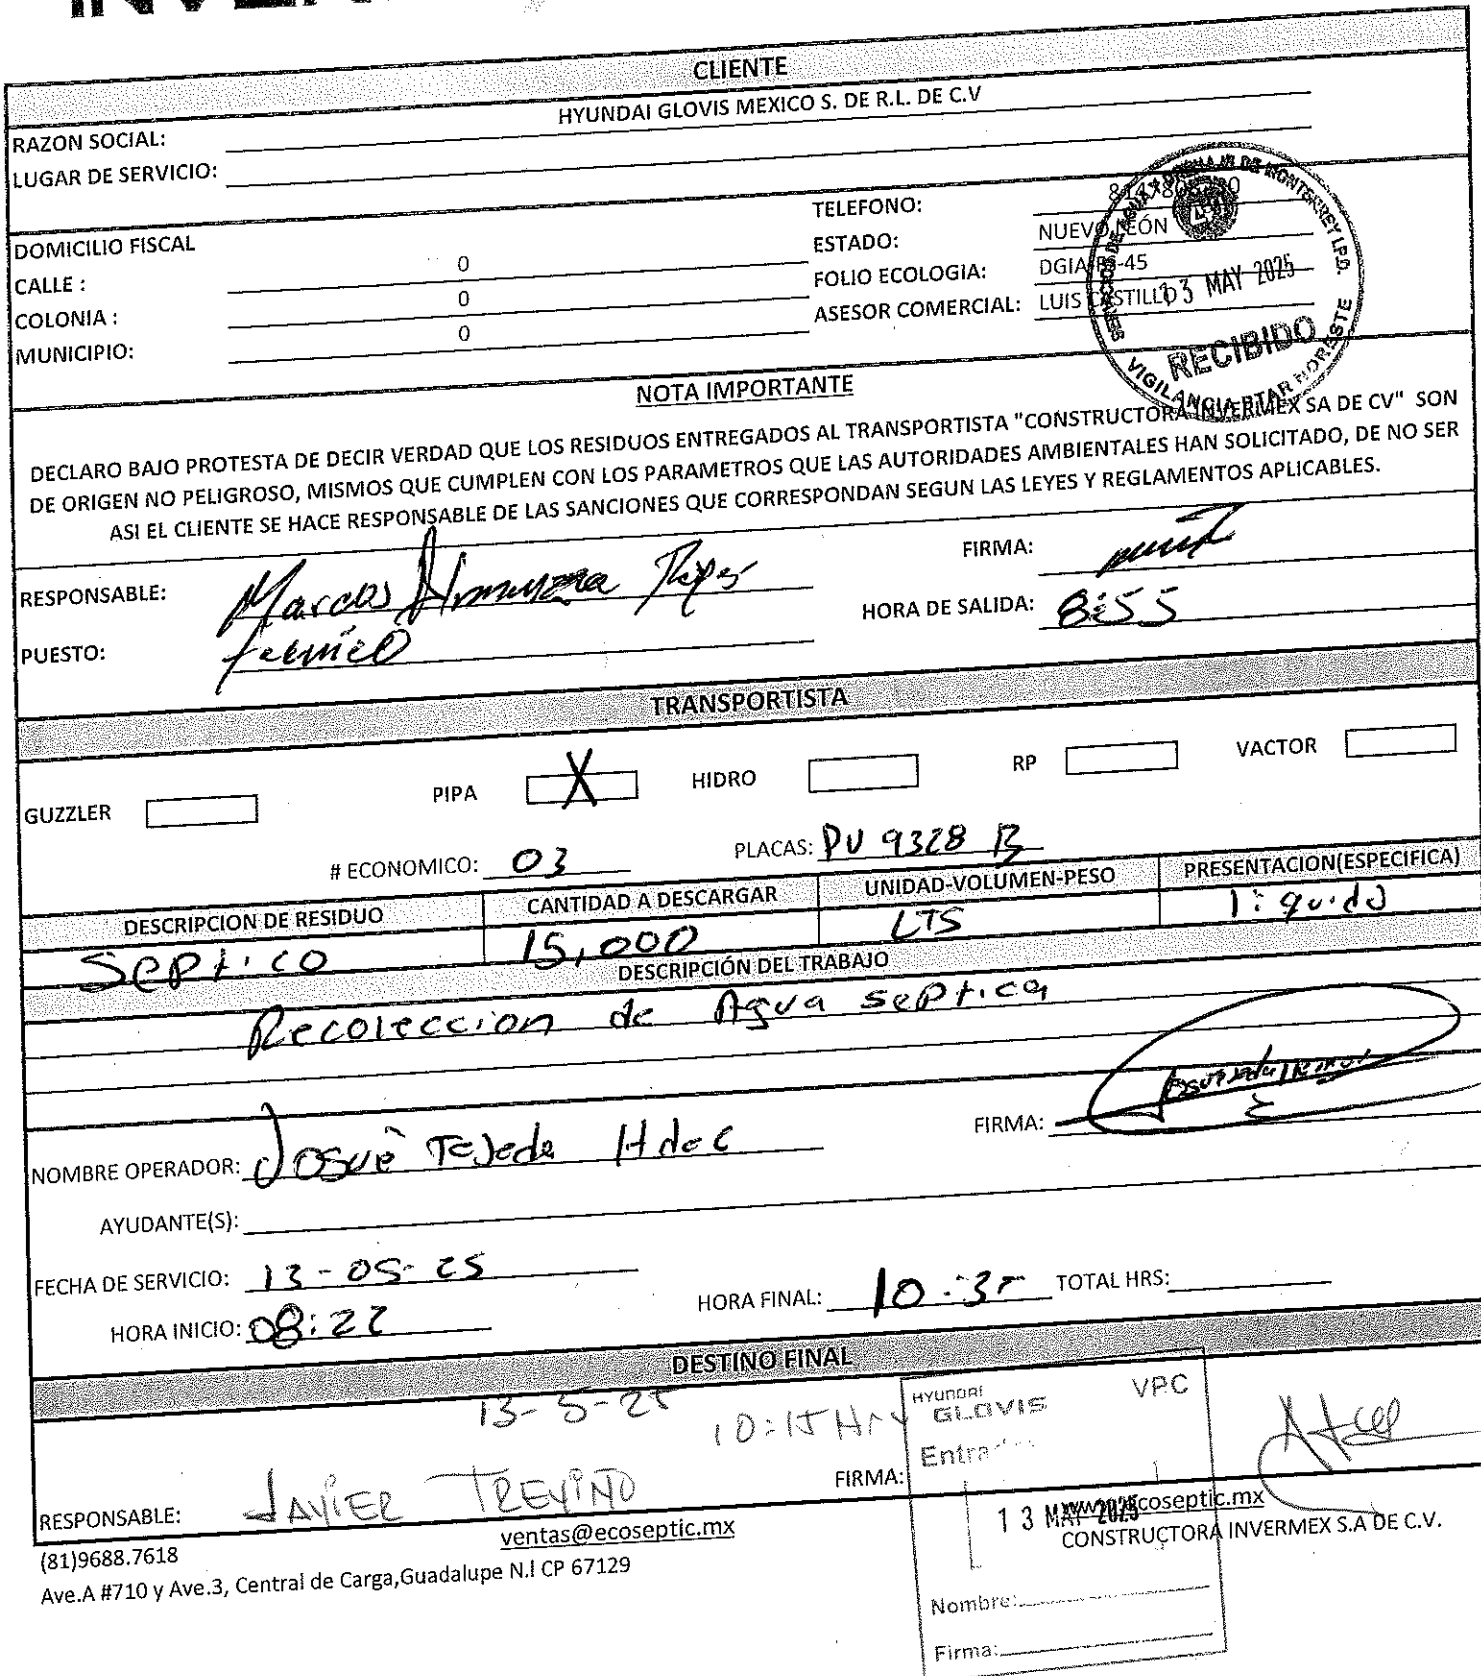 CLIENTE
RAZON SOCIAL: HYUNDAI GLOVIS MEXICO S. DE R.L. DE C.V
LUGAR DE SERVICIO:
DOMICILIO FISCAL TELEFONO:
CALLE : 0 ESTADO: NUEVO LEÓN
COLONIA : 0 FOLIO ECOLOGIA: DGIA 45
MUNICIPIO: 0 ASESOR COMERCIAL: LUIS CASTILLO
SERVICIOS DE AGUA Y DRENAJE DE MONTERREY I.P.D.
13 MAY 2025
RECIBIDO
VIGILANCIA PTAR NORESTE
NOTA IMPORTANTE
DECLARO BAJO PROTESTA DE DECIR VERDAD QUE LOS RESIDUOS ENTREGADOS AL TRANSPORTISTA "CONSTRUCTORA INVERMEX SA DE CV" SON
DE ORIGEN NO PELIGROSO, MISMOS QUE CUMPLEN CON LOS PARAMETROS QUE LAS AUTORIDADES AMBIENTALES HAN SOLICITADO, DE NO SER
ASI EL CLIENTE SE HACE RESPONSABLE DE LAS SANCIONES QUE CORRESPONDAN SEGUN LAS LEYES Y REGLAMENTOS APLICABLES.
RESPONSABLE: Marcos FIRMA:
PUESTO: HORA DE SALIDA: 8:55
TRANSPORTISTA
GUZZLER PIPA X HIDRO RP VACTOR
# ECONOMICO: 03 PLACAS: PU 9328 B
DESCRIPCION DE RESIDUO CANTIDAD A DESCARGAR UNIDAD-VOLUMEN-PESO PRESENTACION(ESPECIFICA)
Septico 15,000 LTS liquido
DESCRIPCIÓN DEL TRABAJO
Recoleccion de Agua septica
NOMBRE OPERADOR: Josué Tejeda FIRMA:
AYUDANTE(S):
FECHA DE SERVICIO: 13-05-25
HORA INICIO: 08:22 HORA FINAL: TOTAL HRS:
DESTINO FINAL
13-5-25 10:15 Hrs
RESPONSABLE: JAVIER TREVIÑO FIRMA:
HYUNDAI GLOVIS VPC
13 MAY 2025
Nombre:
Firma:
(81)9688.7618 ventas@ecoseptic.mx www.ecoseptic.mx
Ave.A #710 y Ave.3, Central de Carga,Guadalupe N.l CP 67129 CONSTRUCTORA INVERMEX S.A DE C.V.